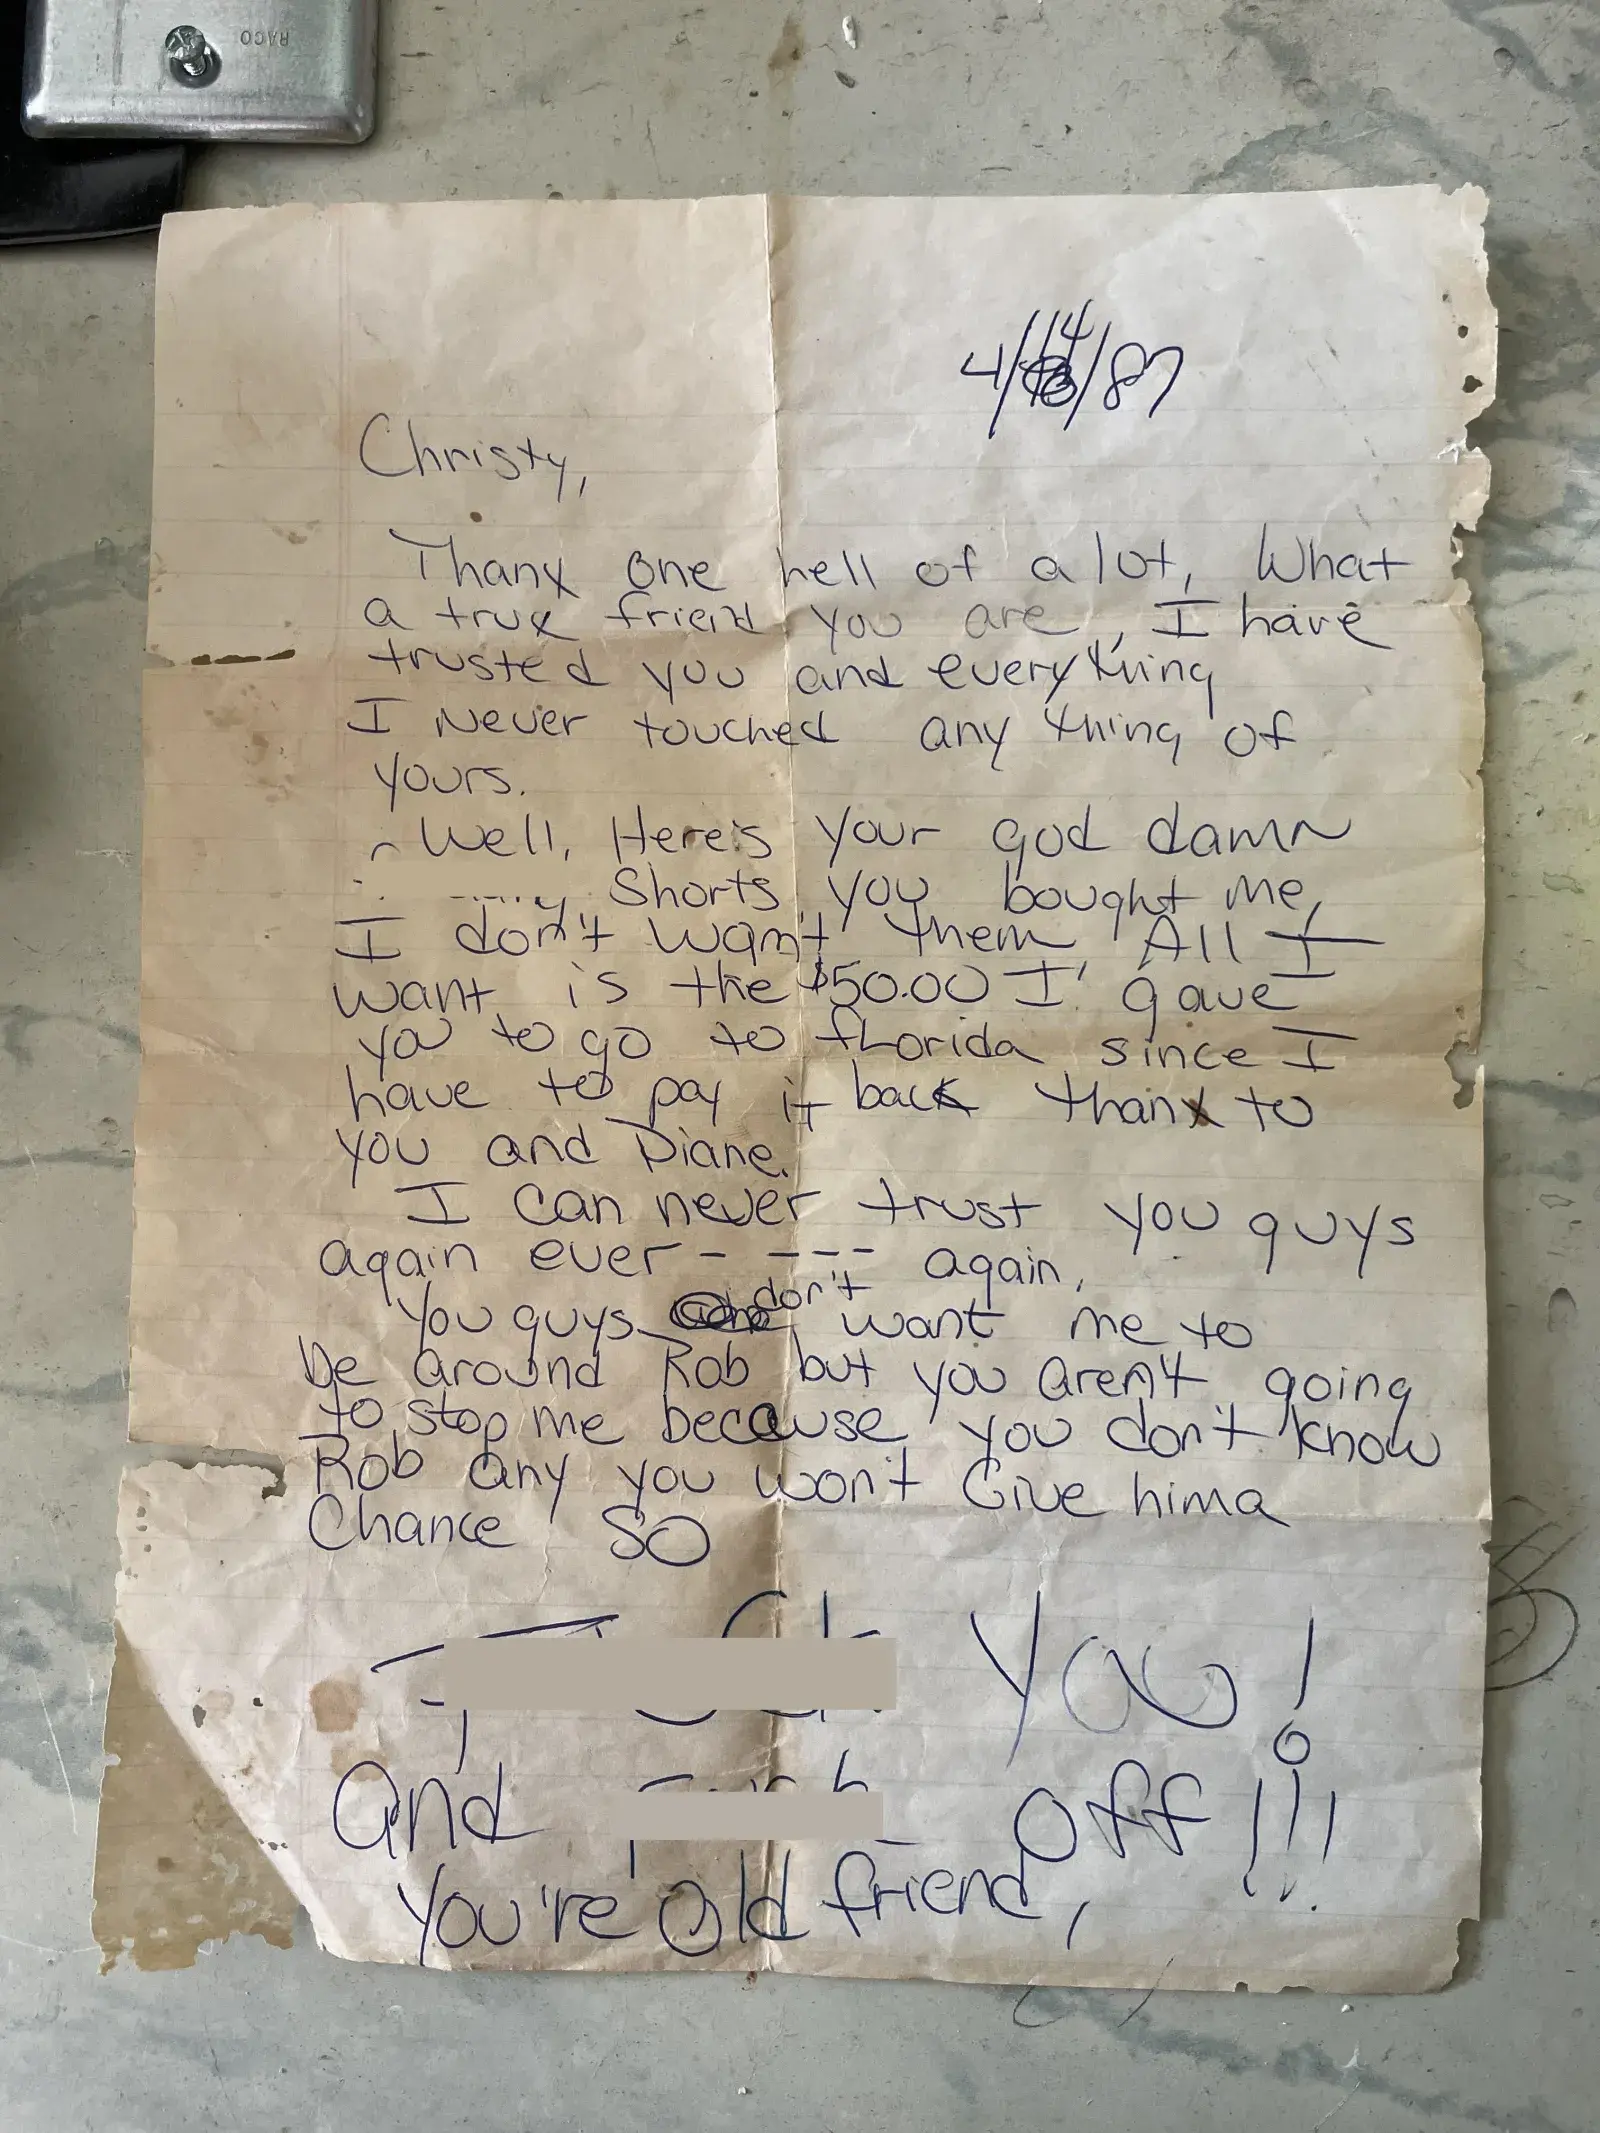 RACO
4/14/87
Christy,
Thanx one hell of a lot, What
a true friend you are, I have
trusted you and everything
I Never touched any thing of
yours.
Well, Here's your god damn
Shorts you bought me,
I don't want them, All I
want is the $50.00 I gave
you to go to fLorida since I
have to pay it back thanx to
you and Diane.
I can never trust you guys
again ever - --- again,
You guys don't want me to
be around Rob but you aren't going
to stop me because you don't know
Rob any you won't Give him a
Chance SO
You!
And off!!!
You're Old friend,